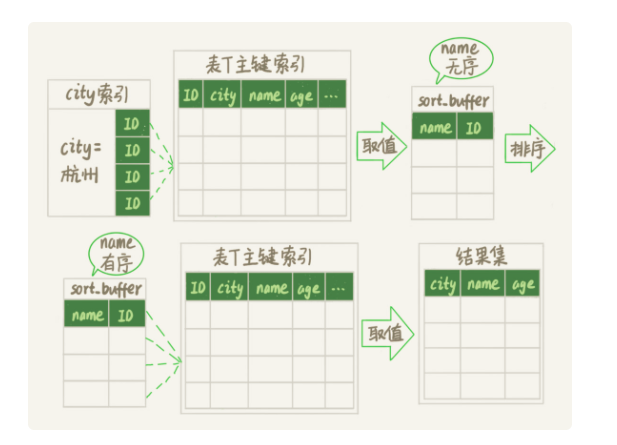 city索引
city=
杭州
ID
ID
ID
ID
表T主键索引
ID city name age ...
取值
name
无序
sort_buffer
name ID
排序
name
有序
sort_buffer
name ID
表T主键索引
ID city name age ...
取值
结果集
city name age